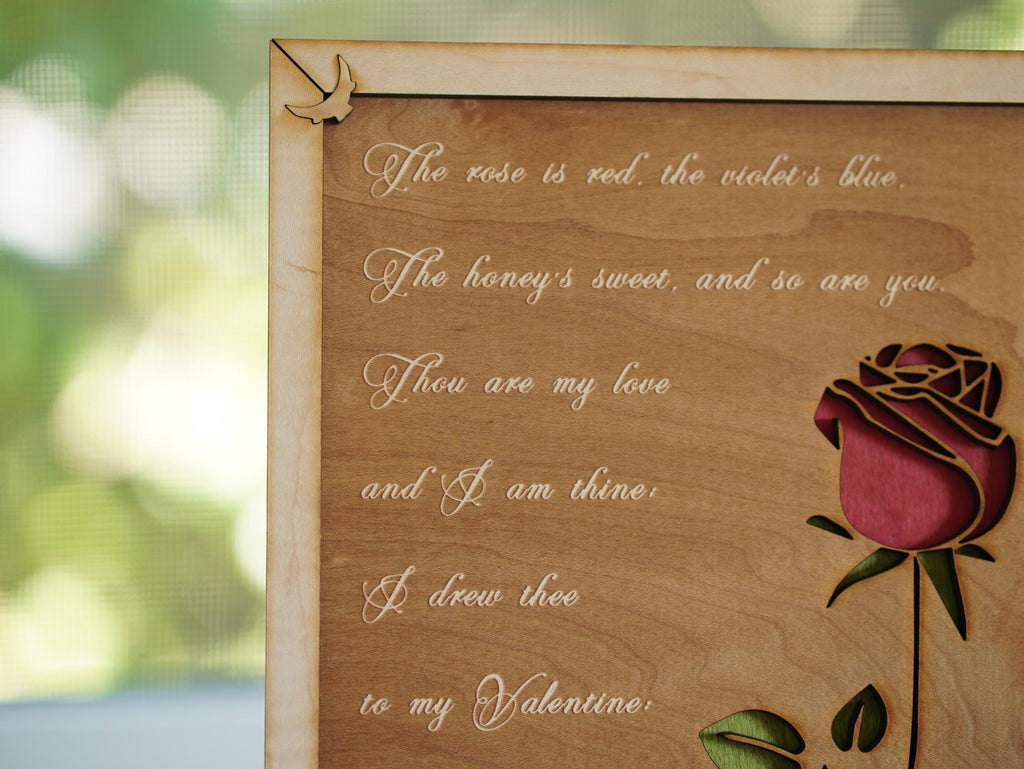 The rose is red, the violet's blue,
The honey's sweet, and so are you.
Thou are my love
and I am thine;
I drew thee
to my Valentine: